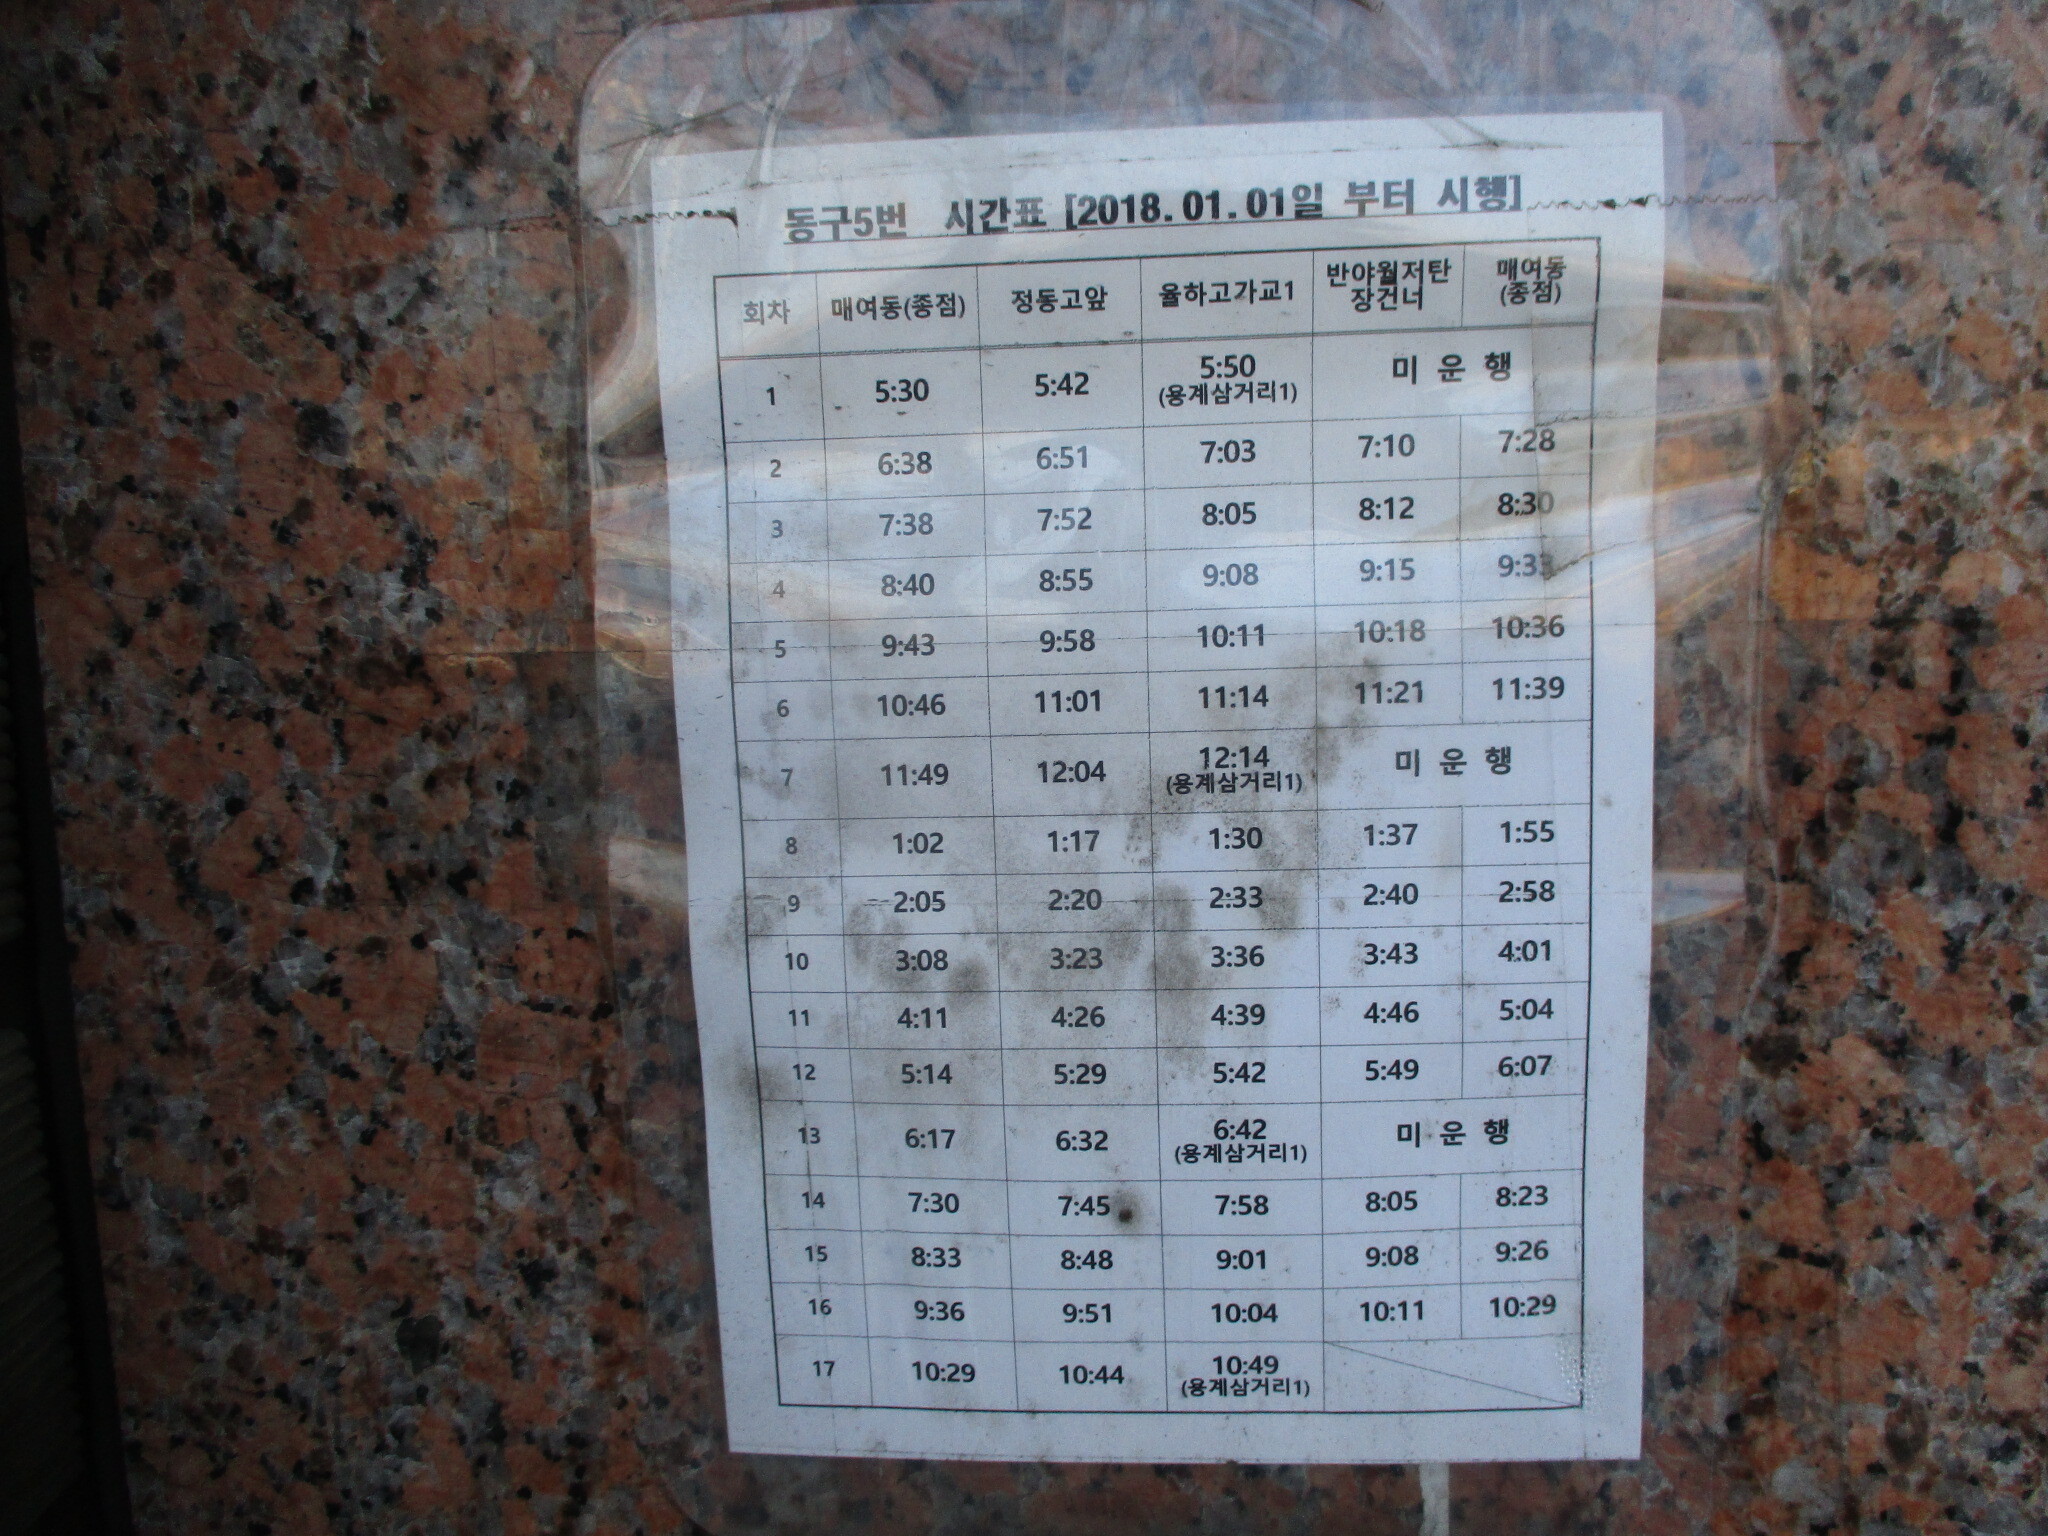 동구5번 시간표 [2018.01.01일 부터 시행]
회차 매여동(종점) 정동고앞 율하고가교1 반야월저탄장건너 매여동(종점)
1 5:30 5:42 5:50 (용계삼거리1) 미 운 행
2 6:38 6:51 7:03 7:10 7:28
3 7:38 7:52 8:05 8:12 8:30
4 8:40 8:55 9:08 9:15 9:33
5 9:43 9:58 10:11 10:18 10:36
6 10:46 11:01 11:14 11:21 11:39
7 11:49 12:04 12:14 (용계삼거리1) 미 운 행
8 1:02 1:17 1:30 1:37 1:55
9 2:05 2:20 2:33 2:40 2:58
10 3:08 3:23 3:36 3:43 4:01
11 4:11 4:26 4:39 4:46 5:04
12 5:14 5:29 5:42 5:49 6:07
13 6:17 6:32 6:42 (용계삼거리1) 미 운 행
14 7:30 7:45 7:58 8:05 8:23
15 8:33 8:48 9:01 9:08 9:26
16 9:36 9:51 10:04 10:11 10:29
17 10:29 10:44 10:49 (용계삼거리1)